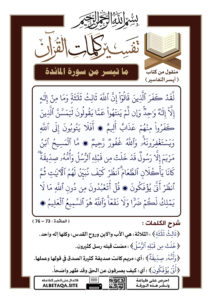 بِسْمِ اللَّهِ الرَّحْمَنِ الرَّحِيمِ
تفسير كلمات القرآن
ما تيسر من سورة المائدة
منقول من كتاب
( أيسر التفاسير )
لَّقَدْ كَفَرَ الَّذِينَ قَالُوٓا۟ إِنَّ اللَّهَ ثَالِثُ ثَلَٰثَةٍ ۘ وَمَا مِنْ إِلَٰهٍ
إِلَّآ إِلَٰهٌ وَٰحِدٌ ۚ وَإِن لَّمْ يَنتَهُوا۟ عَمَّا يَقُولُونَ لَيَمَسَّنَّ الَّذِينَ
كَفَرُوا۟ مِنْهُمْ عَذَابٌ أَلِيمٌ ۞ أَفَلَا يَتُوبُونَ إِلَى اللَّهِ
وَيَسْتَغْفِرُونَهُۥ ۚ وَاللَّهُ غَفُورٌ رَّحِيمٌ ۞ مَّا الْمَسِيحُ ابْنُ
مَرْيَمَ إِلَّا رَسُولٌ قَدْ خَلَتْ مِن قَبْلِهِ الرُّسُلُ وَأُمُّهُۥ صِدِّيقَةٌ ۖ
كَانَا يَأْكُلَانِ الطَّعَامَ ۗ انظُرْ كَيْفَ نُبَيِّنُ لَهُمُ الْءَايَٰتِ ثُمَّ
انظُرْ أَنَّىٰ يُؤْفَكُونَ ۞ قُلْ أَتَعْبُدُونَ مِن دُونِ اللَّهِ مَا لَا
يَمْلِكُ لَكُمْ ضَرًّا وَلَا نَفْعًا ۚ وَاللَّهُ هُوَ السَّمِيعُ الْعَلِيمُ
( المائدة : 73 - 76 )
شرح الكلمات :
( ثَالِثُ ثَلَٰثَةٍ ) : الثلاثة، هي الأب والابن وروح القدس، وكلها إله واحد.
( خَلَتْ مِن قَبْلِهِ الرُّسُلُ ) : مضت قبله رسل كثيرون.
( وَأُمُّهُۥ صِدِّيقَةٌ ) : أي مريم كانت صديقة كثيرة الصدق في قولها وعملها.
( أَنَّىٰ يُؤْفَكُونَ ) : أي كيف يصرفون عن الحق وقد ظهر واضحا.
ALBETAQA.SITE